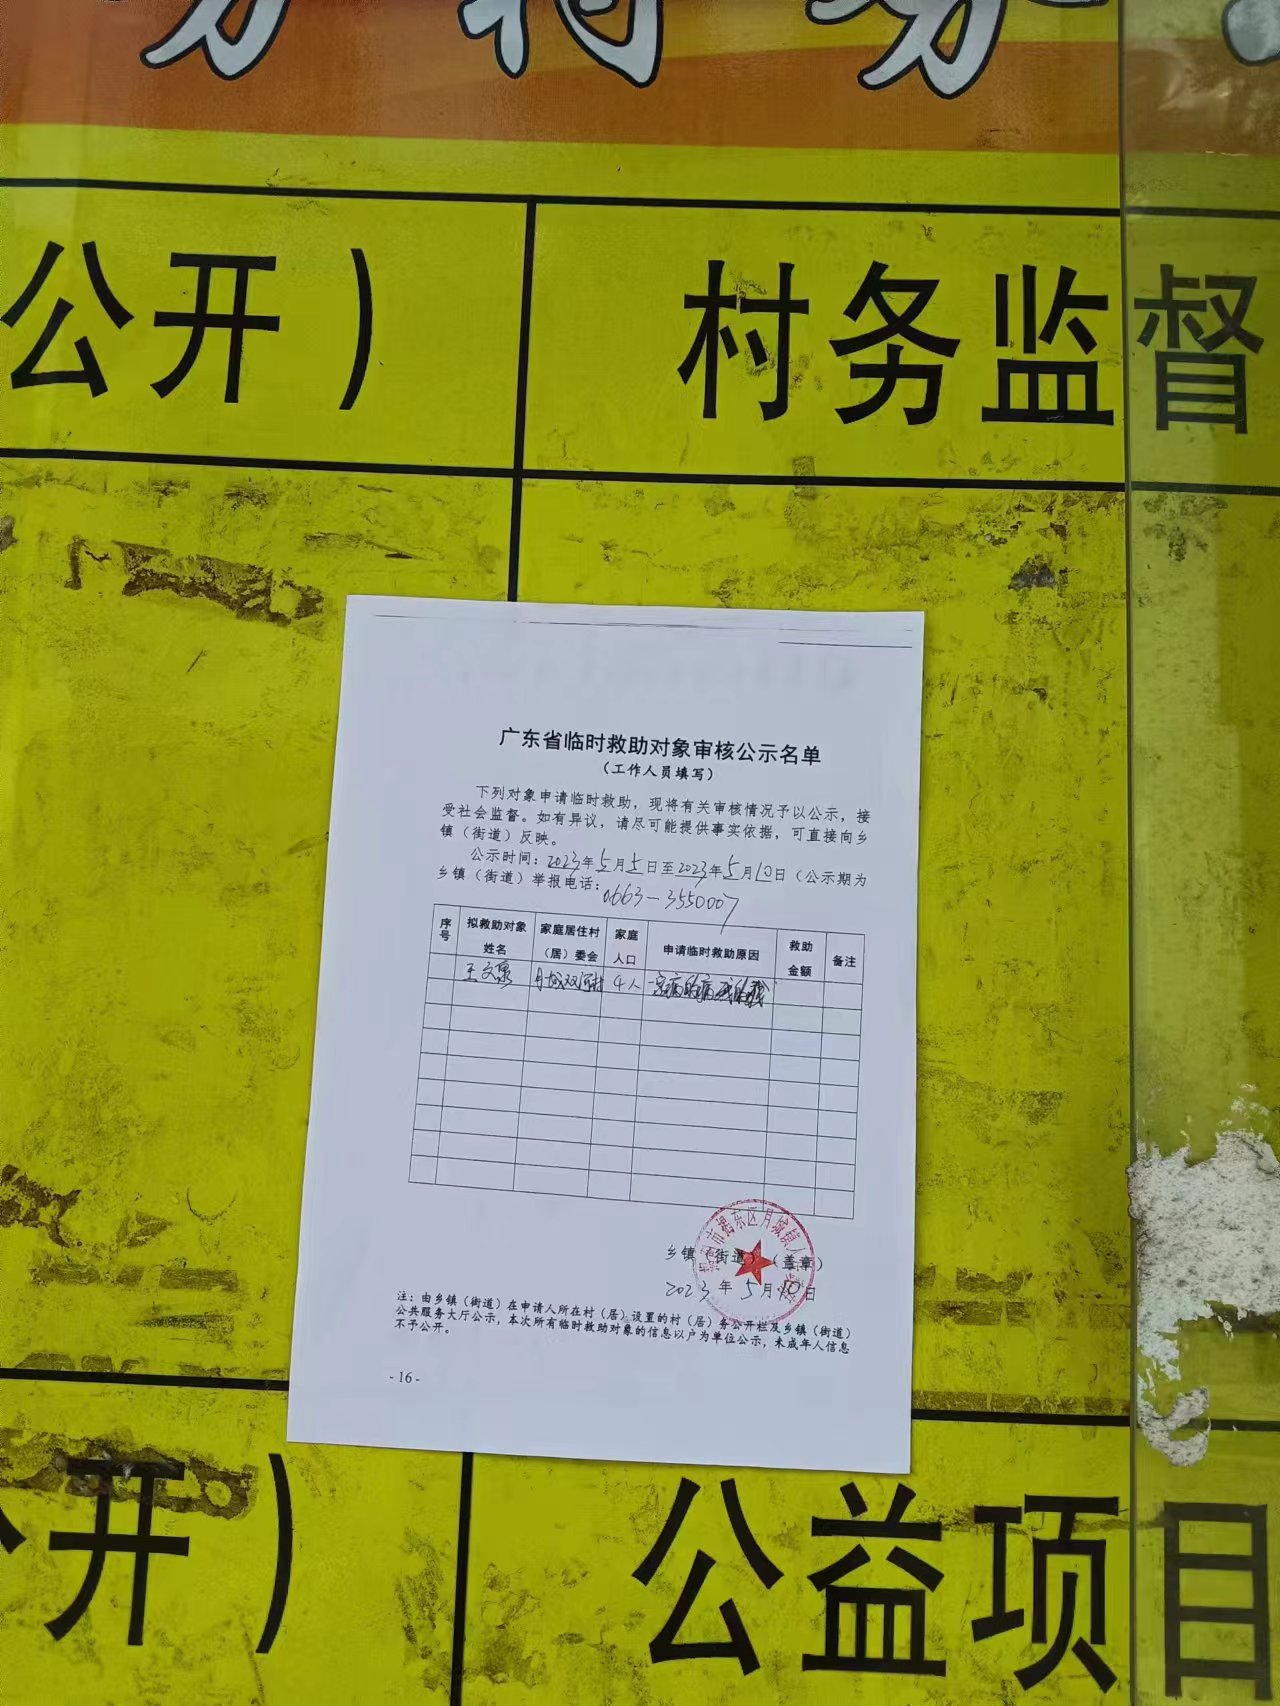 公开）
村务监督
广东省临时救助对象审核公示名单
（工作人员填写）
下列对象申请临时救助，现将有关审核情况予以公示，接
受社会监督。如有异议，请尽可能提供事实依据，可直接向乡
镇（街道）反映。
公示时间：2023年5月5日至2023年5月10日（公示期为
乡镇（街道）举报电话：0663-3550007
序号 拟救助对象姓名 家庭居住村（居）委会 家庭人口 申请临时救助原因 救助金额 备注
王文泉 月城双河村 4人 一家病的病残的残
揭东区月城镇人
乡镇（街道）（盖章）
2023年5月10日
注：由乡镇（街道）在申请人所在村（居）设置的村（居）务公开栏及乡镇（街道）
公共服务大厅公示，本次所有临时救助对象的信息以户为单位公示，未成年人信息
不予公开。
- 16 -
公开）
公益项目